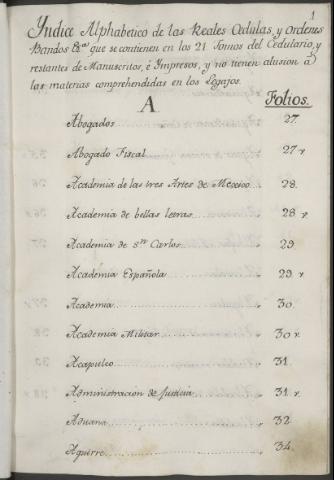 1
Yndice Alphabetico de las Reales Cedulas, y Ordenes
Bandos &ca que se contienen en los 21 Tomos del Cedulario, y
restantes de Manuscritos, è Impresos, y no tienen alusion à
las materias comprehendidas en los Legajos.
A
Folios.
Abogados 27.
Abogado Fiscal 27 v
Academia de las tres Artes de Mexico 28.
Academia de bellas letras 28 v.
Academia de Sn Carlos 29
Academia Española 29 v
Academia 30.
Academia Militar 30 v.
Acapulco 31.
Administracion de Justicia 31 v.
Aduana 32
Aguirre 34.